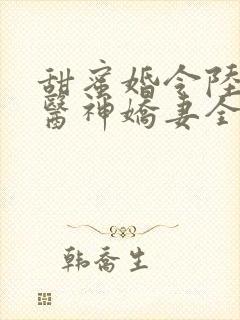 甜蜜婚令陸
醫神嬌妻全
韩乔生